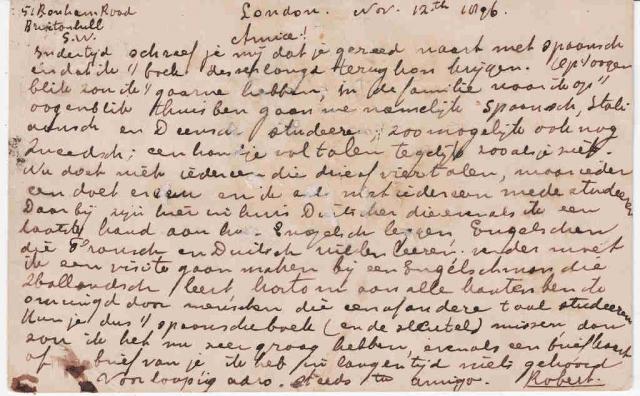 51 Bonham Road London. Nov. 12th 1896.
Brixtonhill
S.W. Amice!
Indertijd schreef je mij dat je gereed waart met spaansch
en dat ik 't boek desverlangd terug kon krijgen. Op 't oogen
blik zou ik 't gaarne hebben, in de familie waar ik op 't
oogenblik thuis ben gaan we namelijk Spaansch, Itali
aansch en Deensch studeeren, zoo mogelijk ook nog
Zweedsch; een handje vol talen tegelijk zooals je ziet.
We doet niet iedereen die drie of vier talen, maar ieder
een doet er een en ik met iedereen mede studeeren
Daarbij zijn hier in huis Duitschers die evenals ik een
laatste hand aan hun Engelsch leggen, Engelschen
die Fransch en Duitsch willen leeren. verder moet
ik een visite gaan maken bij een Engelschman, die
Hollandsch leert, kortom aan alle kanten ben ik
omringd door menschen die een of andere taal studeeren
Kun je dus 't spaansche boek (en de sleutel) missen dan
zou ik het nu zeer graag hebben, evenals een briefkaart
of brief van je ik heb in langen tijd niets gehoord
Voorloopig adres. steeds tu amigo. Robert.